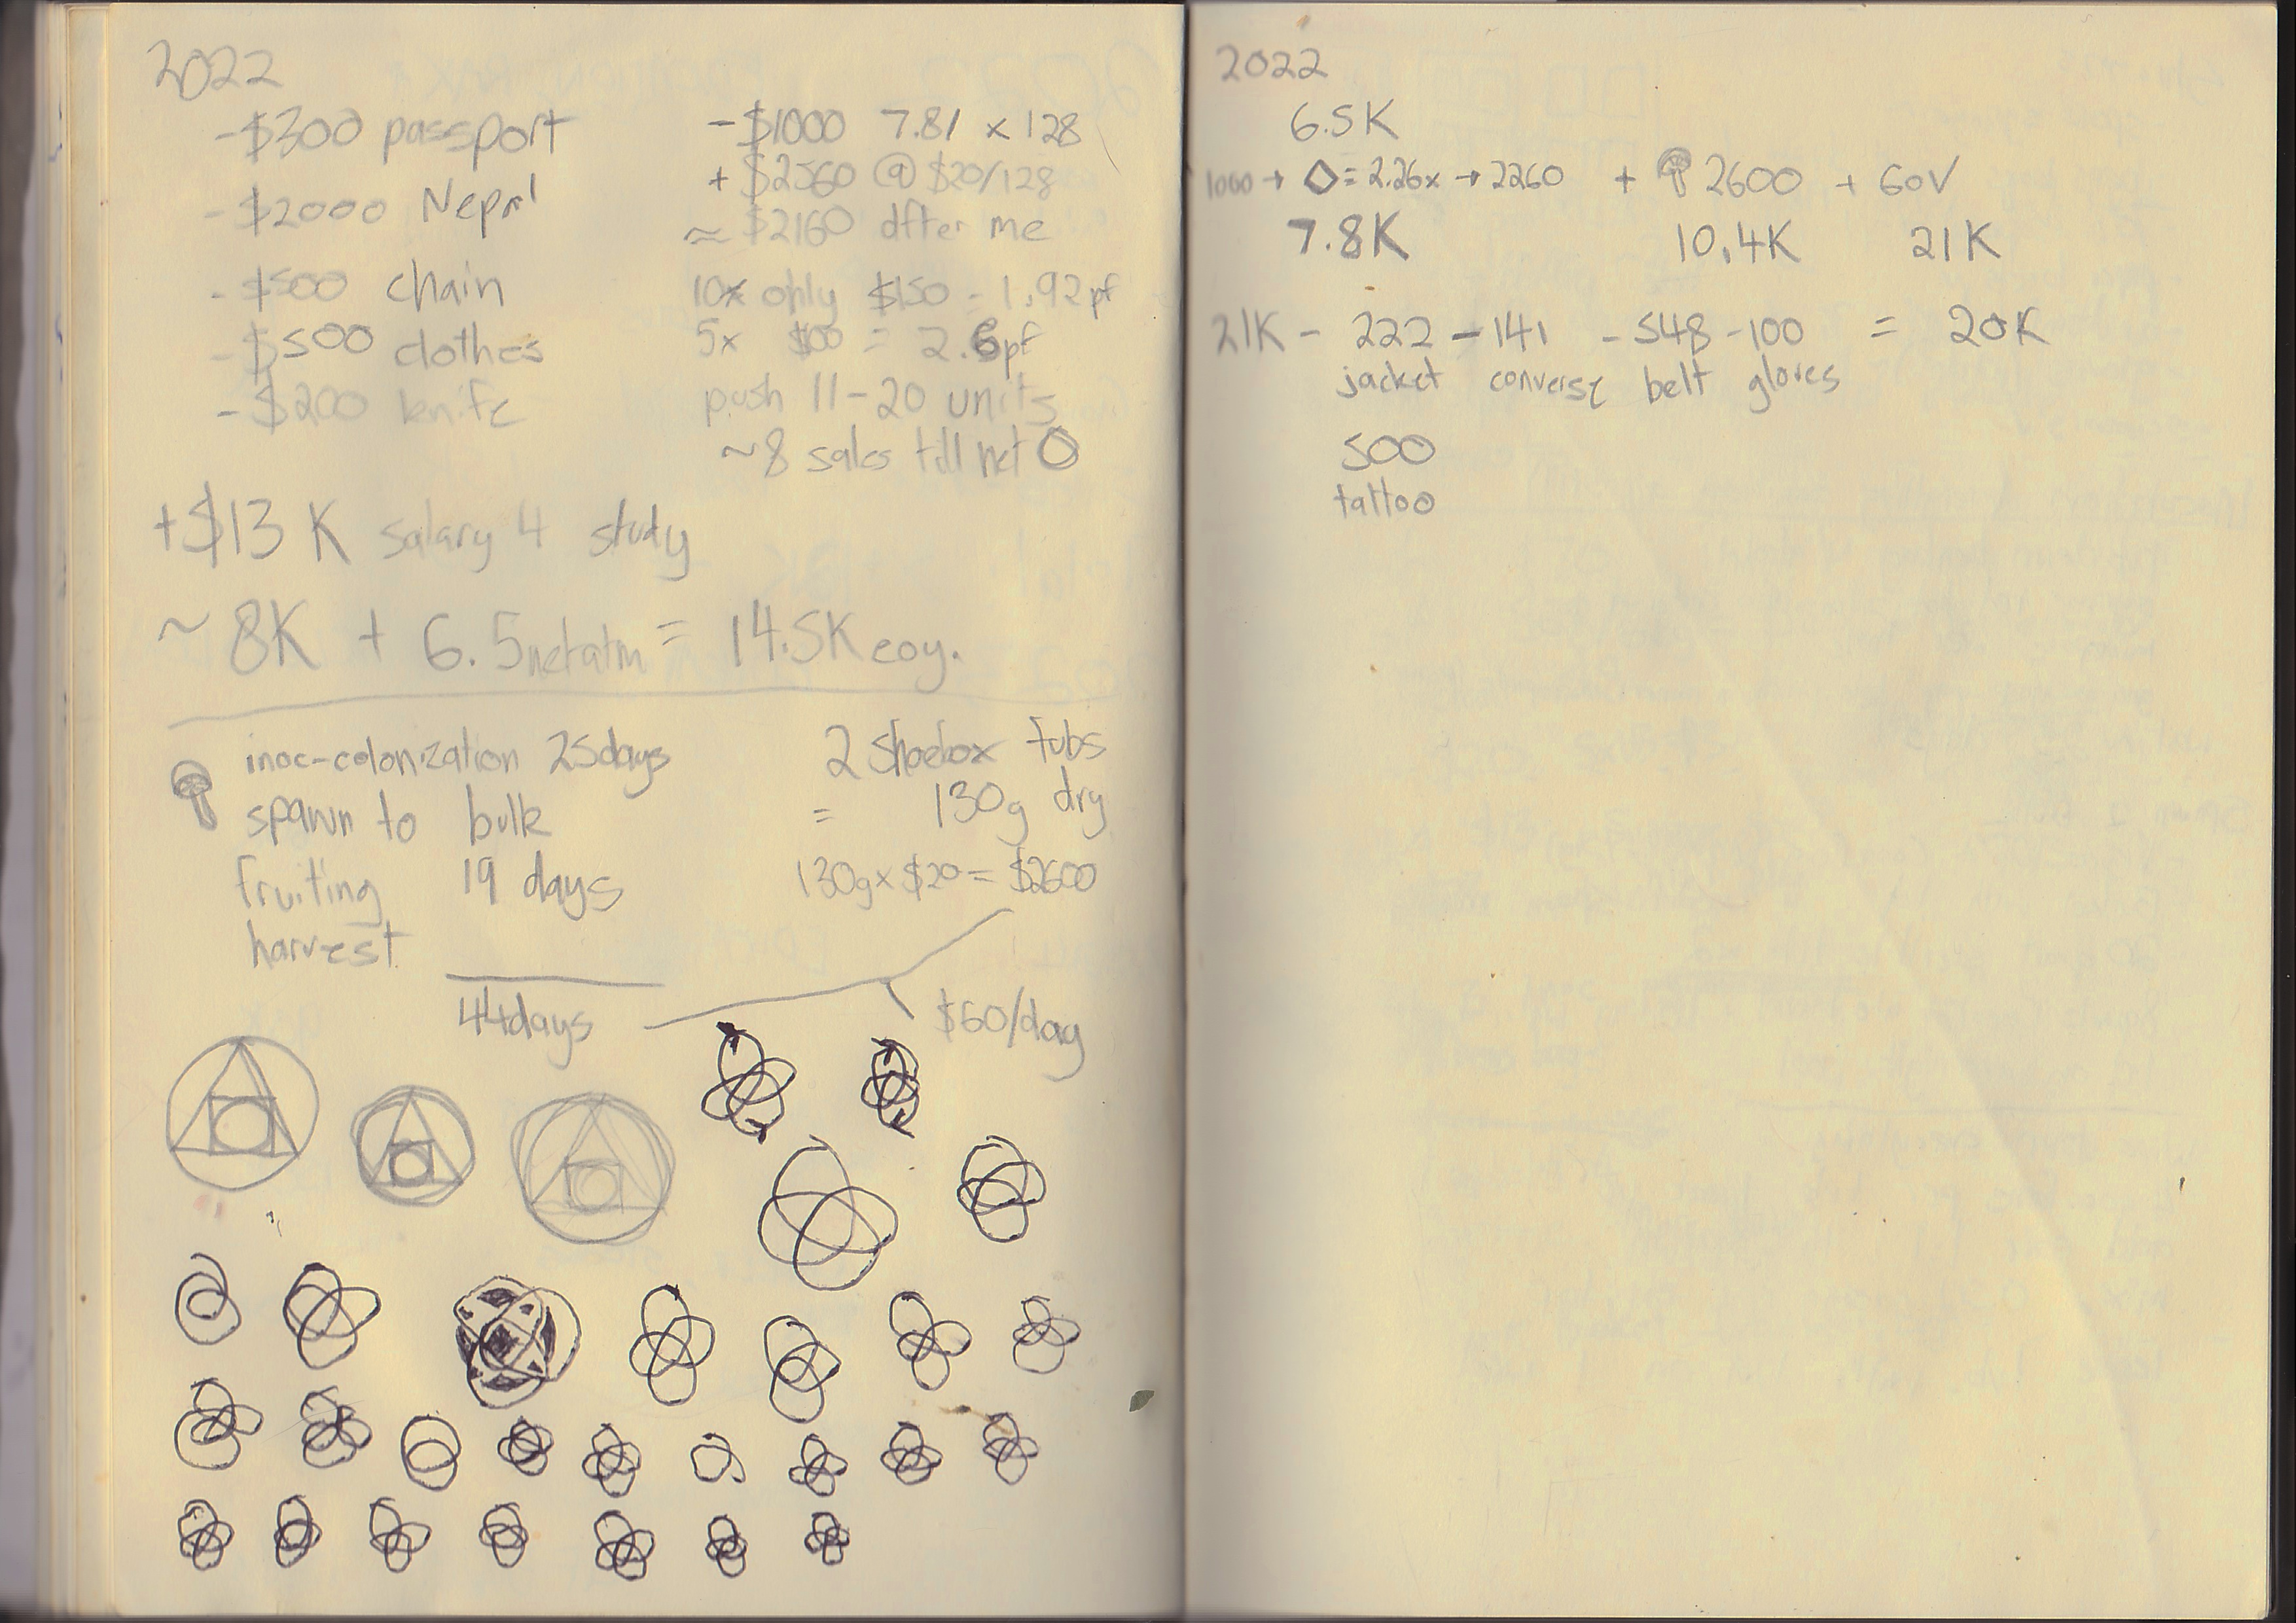 2022
-$300 passport
-$2000 Nepal
-$500 chain
-$500 clothes
-$200 knife
-$1000 7.81 x 128
+$2560 @ $20/128
≈ $2160 after me
10x only $150 = 1.92pf
5x $100 = 2.6pf
push 11-20 units
~8 sales till net 0
+$13K salary 4 study
~8K + 6.5netatm = 14.5K eoy.
inoc-colonization 25days
spawn to bulk
fruiting 19 days
harvest
44days
2 Shoebox tubs
= 130g dry
130g x $20 = $2600
$60/day
2022
6.5K
1000 → ◇= 2.26x → 2260 + 2600 + GOV
7.8K 10.4K 21K
21K - 222 - 141 - 548 - 100 = 20K
jacket converse belt gloves
500
tattoo